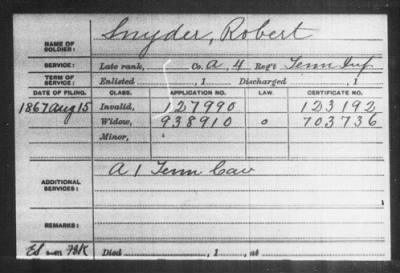 NAME OF SOLDIER: Snyder, Robert
SERVICE: Late rank, Co. A, 4 Reg't Tenn Inf
TERM OF SERVICE: Enlisted , 1 Discharged , 1
DATE OF FILING. CLASS. APPLICATION NO. LAW. CERTIFICATE NO.
1867 Aug 15 Invalid, 127990 123192
Widow, 938910 o 703736
Minor,
ADDITIONAL SERVICES: A 1 Tenn Cav
REMARKS:
Died , 1 , at